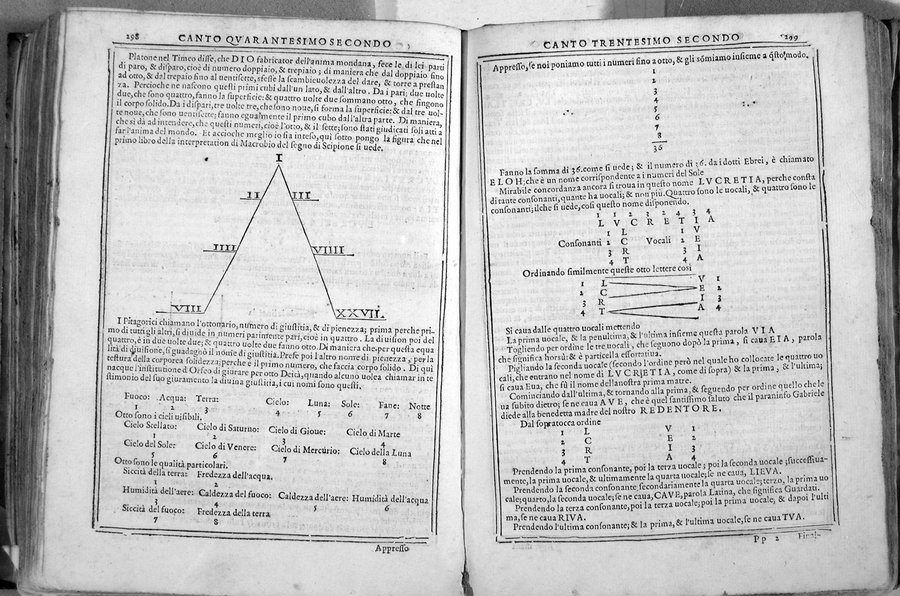 298 CANTO QVARANTESIMO SECONDO
Platone nel Timeo disse, che DIO fabricator dell'anima mondana, fece le di lei parti
di paro, & disparo, cioè di numero doppiaio, & trepiaio; di maniera che dal doppiaio sino
ad otto, & dal trepaio sino al uentisette, stesse la scambieuolezza del dare, & torre a prestan
za. Percioche ne nascono questi primi cubi dall'un lato, & dall'altro. Da i pari: due uolte
due, che sono quattro, fanno la superficie: & quattro uolte due sommano otto, che fingono
il corpo solido. Da i dispari, tre uolte tre, che sono noue, si forma la superficie: & dal tre uol-
te noue, che sono uentisette: fanno egualmente il primo cubo dall'altra parte. Di maniera,
che si dà ad intendere, che questi numeri, cioè l'otto, & il sette; sono stati giudicati soli atti a
far l'anima del mondo. Et accioche meglio io sia inteso, qui sotto pongo la figura che nel
primo libro della interpretation di Macrobio del sogno di Scipione si uede.
I
II III
IIII VIIII
VIII XXVII
I Pitagorici chiamano l'ottonario, numero di giustitia, & di pienezza; prima perche pri-
mo di tutti gli altri, si diuide in numeri parimente pari, cioè in quattro. La diuision poi del
quattro, è in due uolte due; & quattro uolte due fanno otto. Di maniera che, per questa equa
lità di diuisione, si guadagnò il nome di giustitia. Prese poi l'altro nome di pienezza, per la
testura della corporea solidezza; perche è il primo numero, che faccia corpo solido. Di qui
nacque l'institutione d'Orfeo di giurare per otto Deità, quando alcuno uolea chiamar in te
stimonio del suo giuramento la diuina giustitia, i cui nomi sono questi.
Fuoco: Acqua: Terra: Cielo: Luna: Sole: Fane: Notte
1 2 3 4 5 6 7 8
Otto sono i cieli uisibili.
Cielo Stellato: Cielo di Saturno: Cielo di Gioue: Cielo di Marte
1 2 3 4
Cielo del Sole: Cielo di Venere: Cielo di Mercurio: Cielo della Luna
5 6 7 8
Otto sono le qualità particolari.
Siccità della terra: Fredezza dell'acqua.
1 2
Humidità dell'aere: Caldezza del fuoco: Caldezza dell'aere: Humidità dell'acqua
3 4 5 6
Siccità del fuoco: Fredezza della terra
7 8
Appresso
CANTO TRENTESIMO SECONDO 299
Appresso, se noi poniamo tutti i numeri fino a otto, & gli sommiamo insieme a questo modo.
1
2
3
4
5
6
7
8
36
Fanno la somma di 36. come si uede; & il numero di 36. da i dotti Ebrei, è chiamato
ELOH; che è un nome corrispondente a i numeri del Sole
Mirabile concordanza ancora si troua in questo nome LVCRETIA, perche consta
di tante consonanti, quante ha uocali; & non più. Quattro sono le uocali, & quattro sono le
consonanti; ilche si uede, così questo nome disponendo.
1 1 2 3 2 4 3 4
L V C R E T I A
1 L 1 V
Consonanti 2 C Vocali 2 E
3 R 3 I
4 T 4 A
Ordinando similmente queste otto lettere così
1 L V 1
2 C E 2
3 R I 3
4 T A 4
Si caua dalle quattro uocali mettendo
La prima uocale, & la penultima, & l'ultima insieme questa parola VIA
Togliendo per ordine le tre uocali, che seguono dopò la prima, si caua EIA, parola
che significa horsù: & è particella essortatiua.
Pigliando la seconda uocale (secondo l'ordine però nel quale ho collocate le quattro uo
cali, che entrano nel nome di LVCRETIA, come di sopra) & la prima, & l'ultima;
si caua Eua, che fù il nome della nostra prima madre.
Cominciando dall'ultima, & tornando alla prima, & seguendo per ordine quello che le
ua subito dietro; se ne caua AVE, che è quel santissimo saluto che il paraninfo Gabriele
diede alla benedetta madre del nostro REDENTORE.
Dal sopratocca ordine
1 L V 1
2 C E 2
3 R I 3
4 T A 4
Prendendo la prima consonante, poi la terza uocale; poi la seconda uocale; successiua-
mente, la prima uocale, & ultimamente la quarta uocale; se ne caua, LIEVA.
Prendendo la seconda consonante, secondariamente la quarta uocale; terzo, la prima uo
cale; quarto, la seconda uocale; se ne caua, CAVE, parola Latina, che significa Guardati.
Prendendo la terza consonante, poi la terza uocale; poi la prima uocale, & dapoi l'ulti
ma, se ne caua RIVA.
Prendendo l'ultima consonante; & la prima, & l'ultima uocale, se ne caua TVA.
Pp 2 Final-